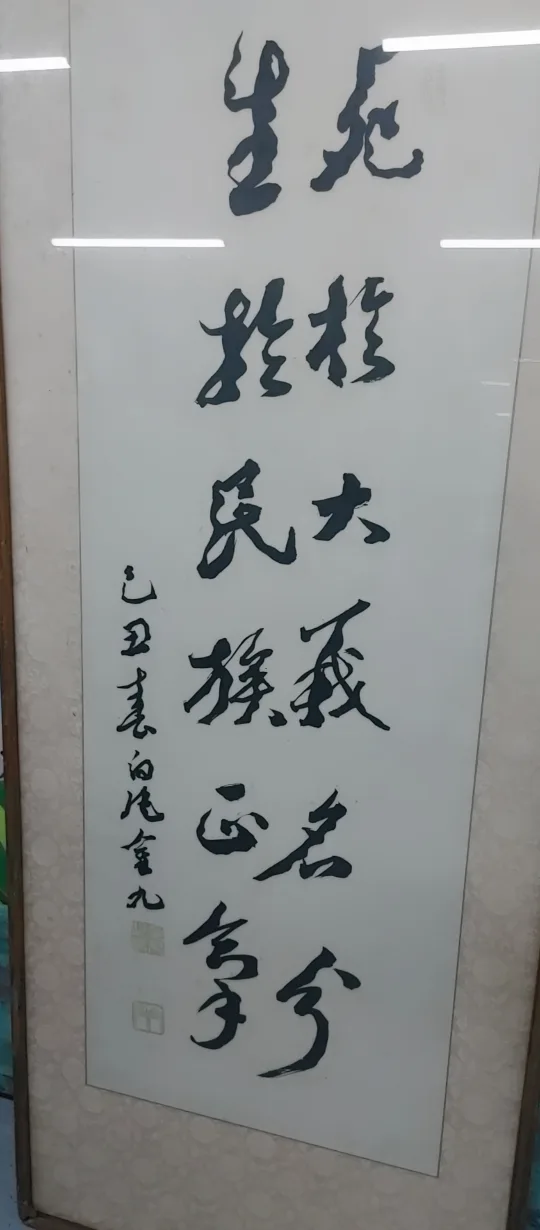 死於大義名分
生於民族正
己丑春白凡金九